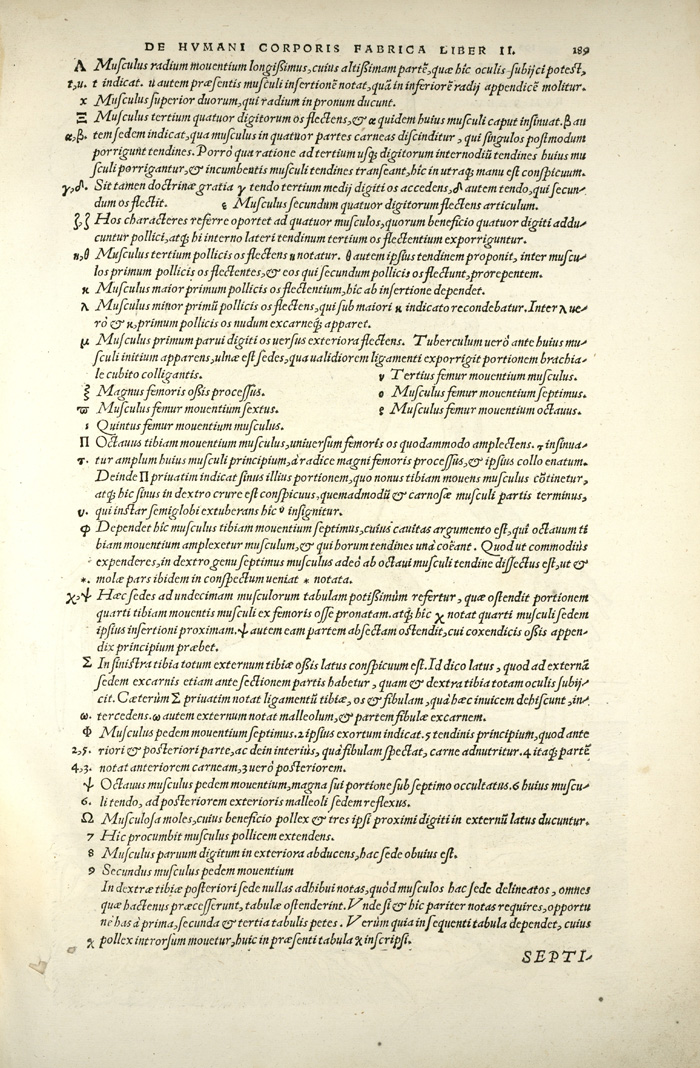 DE HVMANI CORPORIS FABRICA LIBER II. 189
Λ Musculus radium mouentium longißimus, cuius altißimam partē, quæ hic oculis subijci potest,
t,u. t indicat. u autem præsentis musculi insertionē notat, quā in inferiorē radij appendicē molitur.
x Musculus superior duorum, qui radium in pronum ducunt.
Ξ Musculus tertium quatuor digitorum os flectens, & α quidem huius musculi caput insinuat. β au
α,β. tem sedem indicat, qua musculus in quatuor partes carneas discinditur, qui singulos postmodum
porrigunt tendines. Porrò qua ratione ad tertium usq; digitorum internodiū tendines huius mu
sculi porrigantur, & incumbentis musculi tendines transeant, hic in utraq; manu est conspicuum.
γ,δ. Sit tamen doctrinæ gratia γ tendo tertium medij digiti os accedens, δ autem tendo, qui secun-
dum os flectit. ε Musculus secundum quatuor digitorum flectens articulum.
ζ,ζ Hos characteres referre oportet ad quatuor musculos, quorum beneficio quatuor digiti addu-
cuntur pollici, atq; hi interno lateri tendinum tertium os flectentium exporriguntur.
η,θ Musculus tertium pollicis os flectens η notatur. θ autem ipsius tendinem proponit, inter muscu-
los primum pollicis os flectentes, & eos qui secundum pollicis os flectunt, prorepentem.
κ Musculus maior primum pollicis os flectentium, hic ab insertione dependet.
λ Musculus minor primū pollicis os flectens, qui sub maiori κ indicato recondebatur. Inter λ ue-
rò & κ, primum pollicis os nudum excarneq́; apparet.
μ Musculus primum parui digiti os uersus exteriora flectens. Tuberculum uerò ante huius mu-
sculi initium apparens, ulnæ est sedes, qua ualidiorem ligamenti exporrigit portionem brachia-
le cubito colligantis. ν Tertius femur mouentium musculus.
ξ Magnus femoris oßis processus. ο Musculus femur mouentium septimus.
ϖ Musculus femur mouentium sextus. ρ Musculus femur mouentium octauus.
s Quintus femur mouentium musculus.
Π Octauus tibiam mouentium musculus, uniuersum femoris os quodammodo amplectens. τ insinua-
τ. tur amplum huius musculi principium, à radice magni femoris processus, & ipsius collo enatum.
Deinde Π priuatim indicat sinus illius portionem, quo nonus tibiam mouens musculus cōtinetur,
atq; hic sinus in dextro crure est conspicuus, quemadmodū & carnosæ musculi partis terminus,
υ. qui instar semiglobi extuberans hic υ insignitur.
φ Dependet hic musculus tibiam mouentium septimus, cuius cauitas argumento est, quî octauum ti
biam mouentium amplexetur musculum, & qui horum tendines unà coëant. Quod ut commodiùs
expenderes, in dextro genu septimus musculus adeò ab octaui musculi tendine dissectus est, ut &
*. molæ pars ibidem in conspectum ueniat * notata.
χ,ψ Hæc sedes ad undecimam musculorum tabulam potißimùm refertur, quæ ostendit portionem
quarti tibiam mouentis musculi ex femoris osse pronatam. atq; hic χ notat quarti musculi sedem
ipsius insertioni proximam. ψ autem eam partem absectam ostendit, cui coxendicis oßis appen-
dix principium præbet.
Σ In sinistra tibia totum externum tibiæ oßis latus conspicuum est. Id dico latus, quod ad externā
sedem excarnis etiam ante sectionem partis habetur, quam & dextra tibia totam oculis subij-
cit. Cæterùm Σ priuatim notat ligamentū tibiæ, os & fibulam, quà hæc inuicem dehiscunt, in-
ω. tercedens. ω autem externum notat malleolum, & partem fibulæ excarnem.
Φ Musculus pedem mouentium septimus. 2 ipsius exortum indicat. 5 tendinis principium, quod ante
2,5. riori & posteriori parte, ac dein interiùs, quà fibulam spectat, carne adnutritur. 4 itaq; partē
4,3. notat anteriorem carneam, 3 uerò posteriorem.
ψ Octauus musculus pedem mouentium, magna sui portione sub septimo occultatus. 6 huius muscu-
6. li tendo, ad posteriorem exterioris malleoli sedem reflexus.
Ω Musculosa moles, cuius beneficio pollex & tres ipsi proximi digiti in externū latus ducuntur.
7 Hic procumbit musculus pollicem extendens.
8 Musculus paruum digitum in exteriora abducens, hac sede obuius est.
9 Secundus musculus pedem mouentium
In dextræ tibiæ posteriori sede nullas adhibui notas, quòd musculos hac sede delineatos, omnes
quæ hactenus præcesserunt, tabulæ ostenderint. Vnde si & hic pariter notas requires, opportu
nè has à prima, secunda & tertia tabulis petes. Verùm quia in sequenti tabula dependet, cuius
χ pollex introrsum mouetur, huic in præsenti tabula χ inscripsi.
SEPTI-